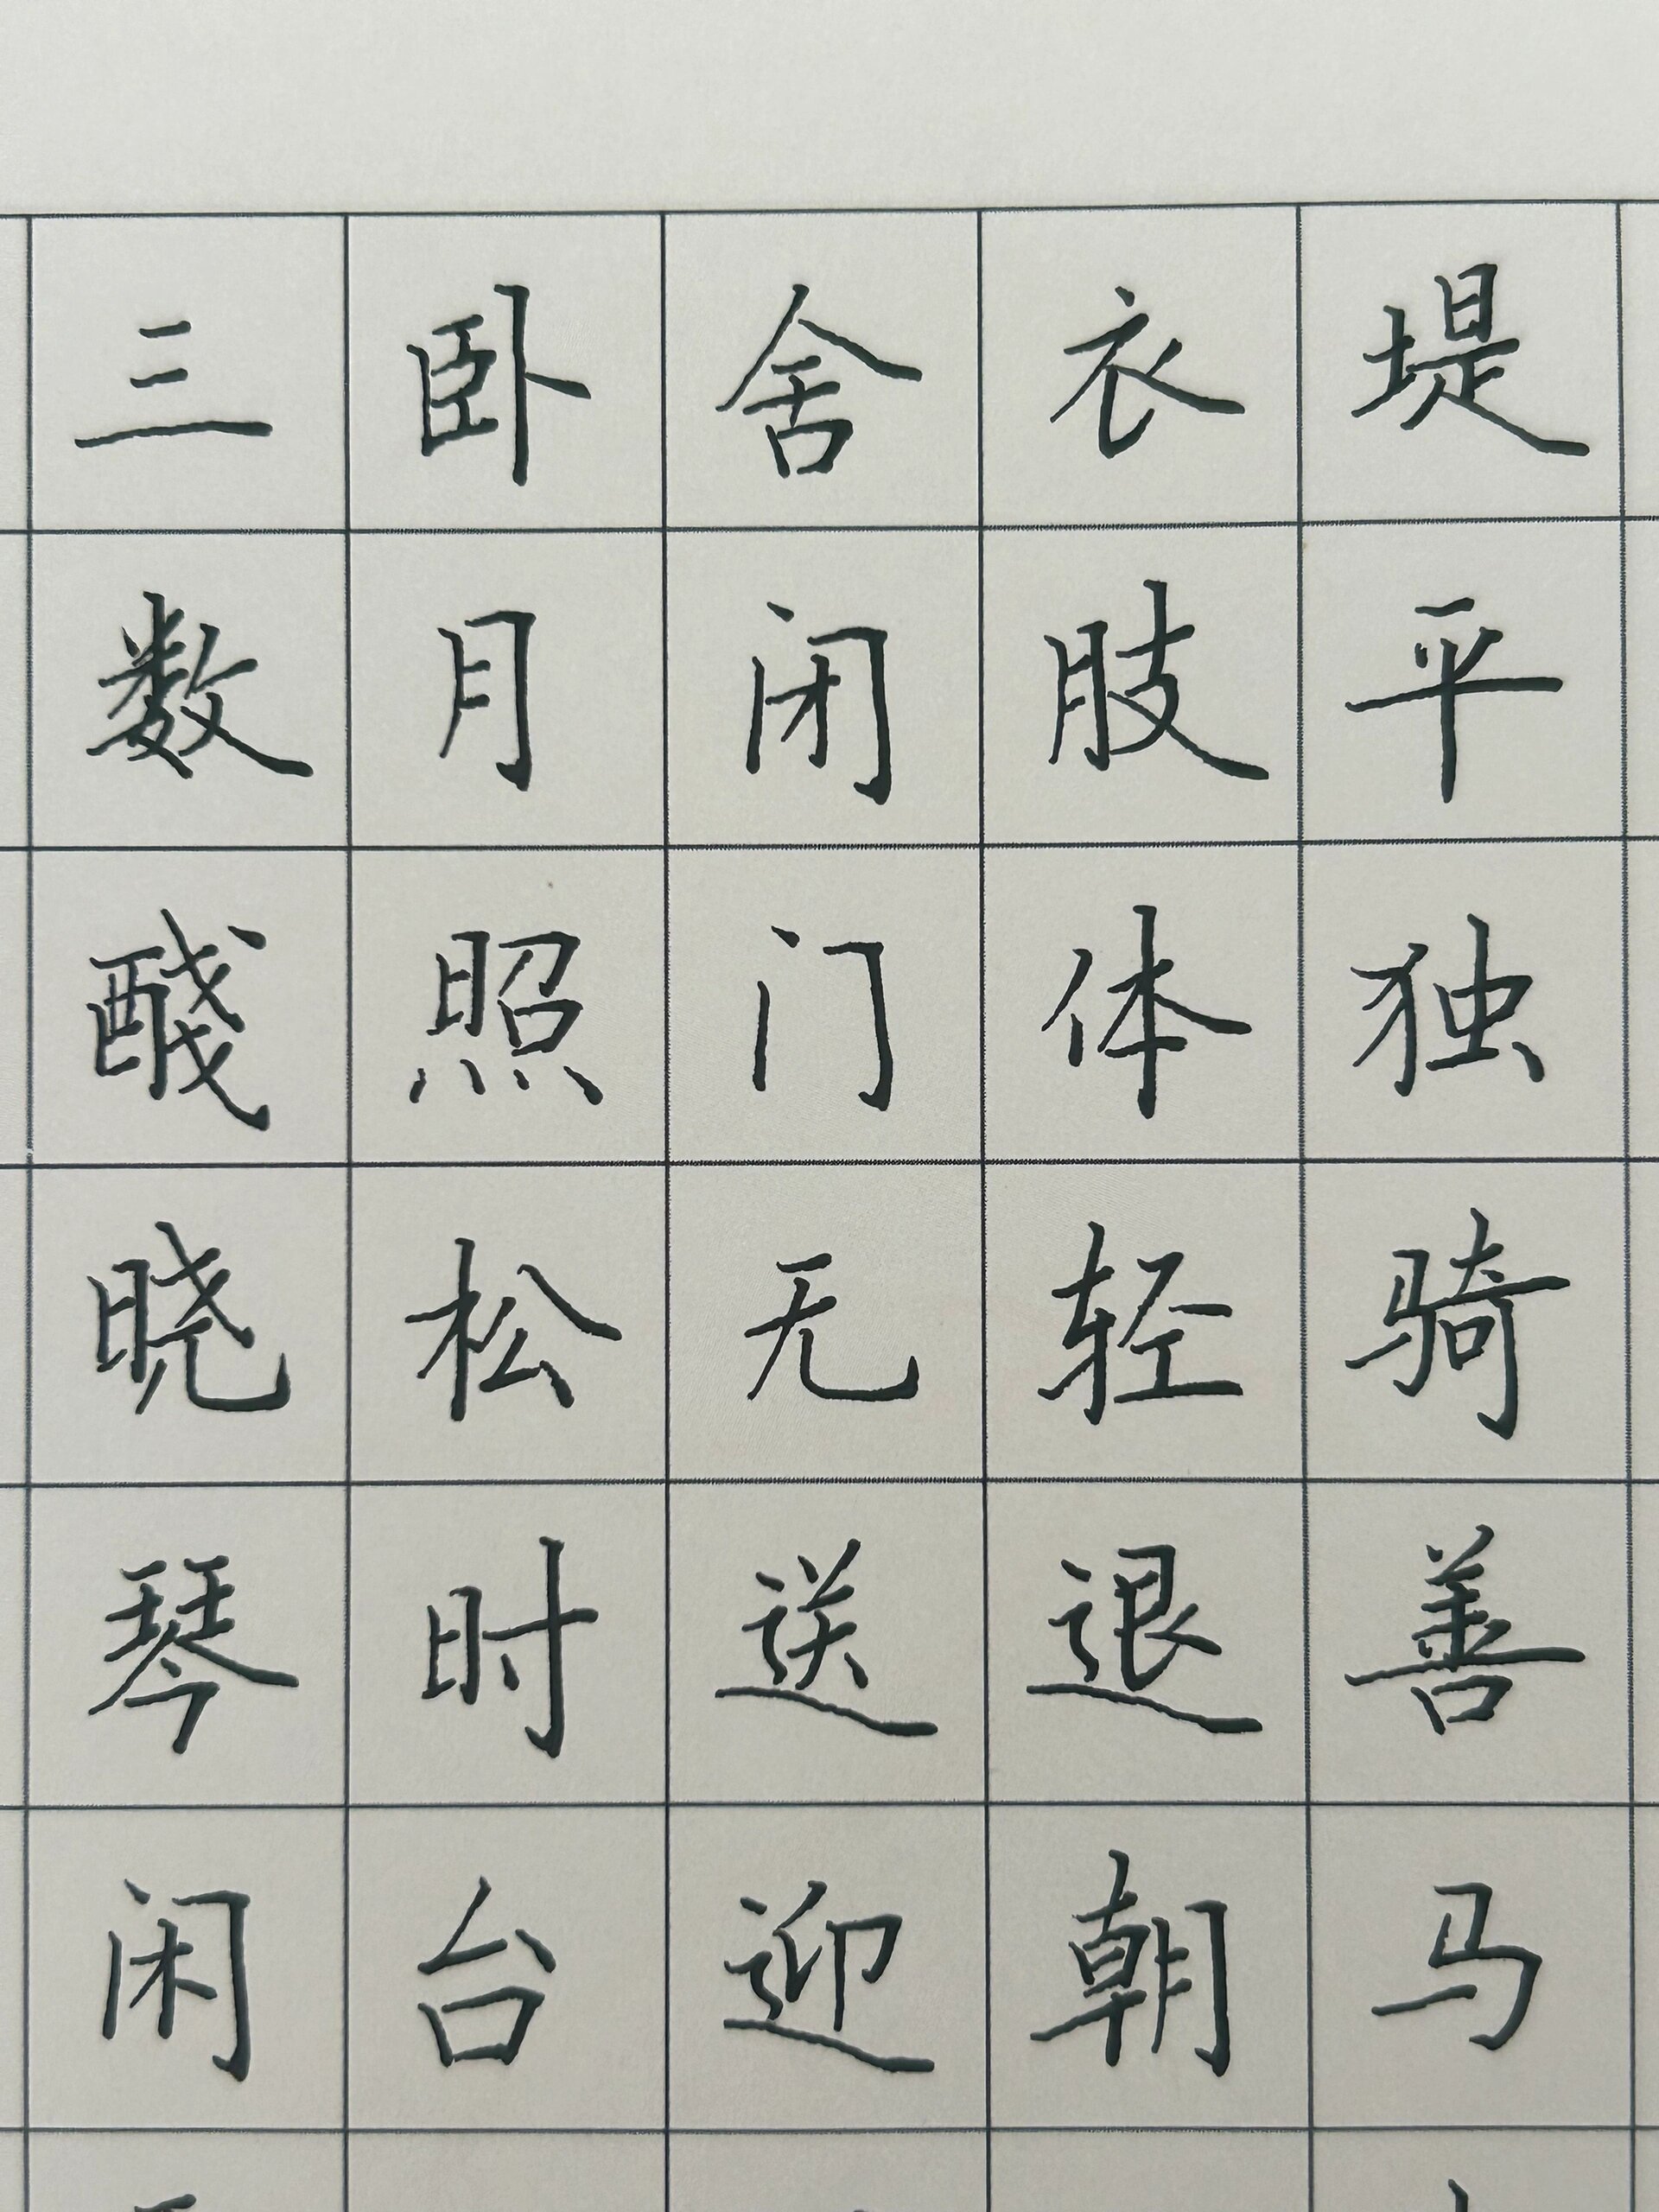 堤平独骑善马
衣肢体轻退朝
舍闭门无送迎
卧月照松时台
三数醆晓琴闲